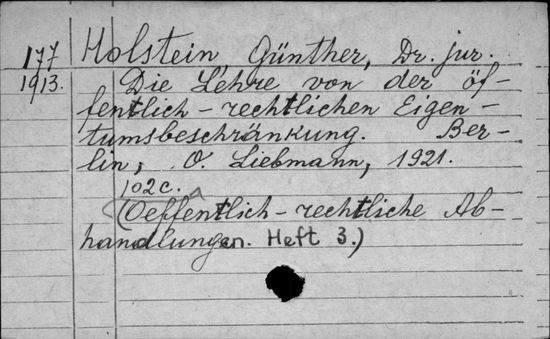 177 Holstein, Günther, Dr. jur.
1913. Die Lehre von der öf-
fentlich-rechtlichen Eigen-
tumsbeschränkung. Ber-
lin, O. Liebmann, 1921.
102c.
(Oeffentlich-rechtliche Ab-
handlungen. Heft 3.)